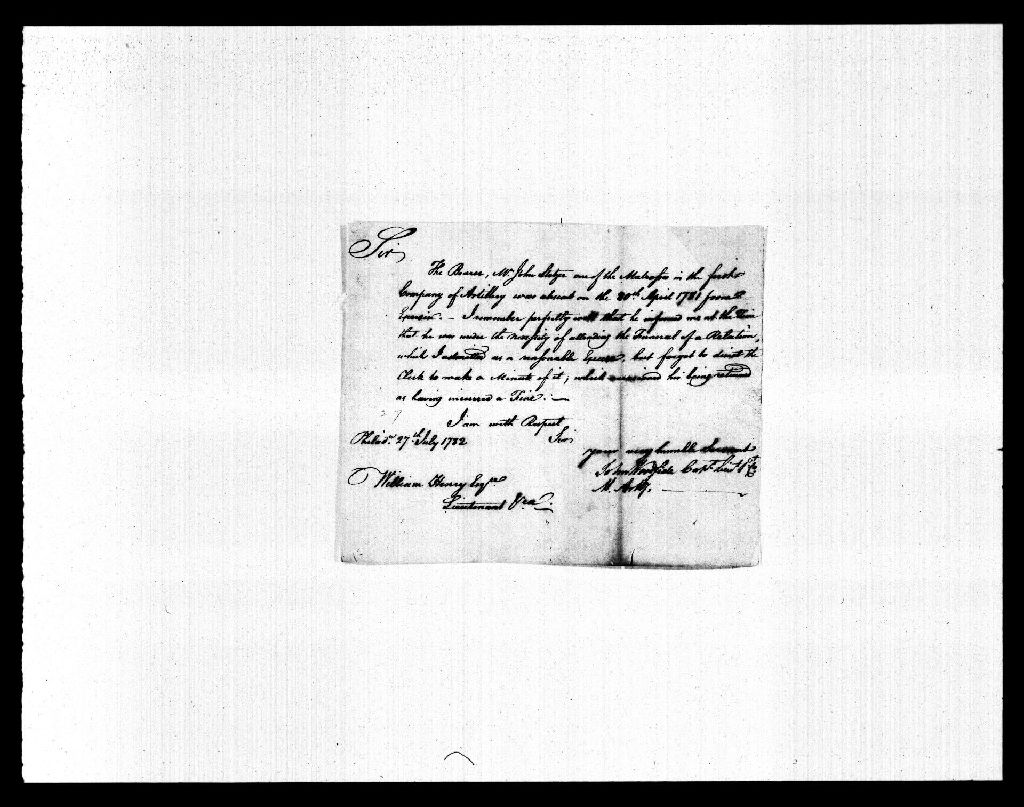 Sir
The Bearer, Mr John Stotze one of the Matrosses in the first
Company of Artillery was absent on the 20th April 1781 from
Exercise. – I remember perfectly well that he informed me at the Time
that he was under the necessity of attending the Funeral of a Relation,
which I admitted as a reasonable Excuse, but forgot to direct the
Clerk to make a Minute of it; which occasioned his being returned
as having incurred a Fine. —
I am with Respect
Philada 27th July 1782 Sir
your very humble Servant
John Capt Lieut
M. Arty.
William Henry Esqr
Lieutenant &ca.